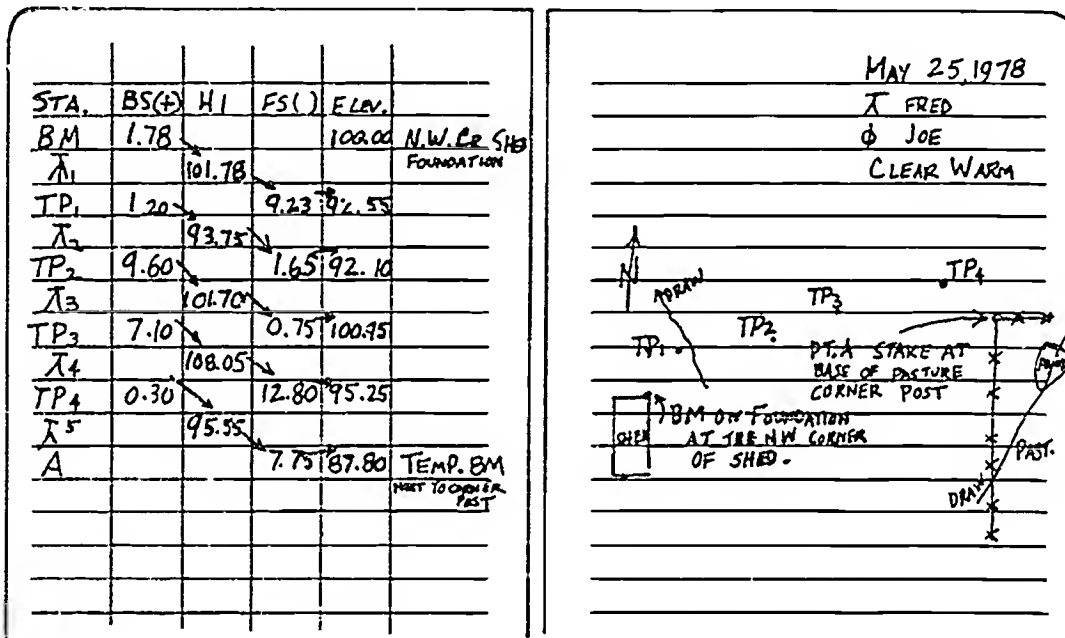 STA. BS(+) HI FS( ) ELEV.
BM 1.78 100.00 N.W. CR SHED
FOUNDATION
⊼1 101.78
TP1 1.20 9.23 92.55
⊼2 93.75
TP2 9.60 1.65 92.10
⊼3 101.70
TP3 7.10 0.75 100.95
⊼4 108.05
TP4 0.30 12.80 95.25
⊼5 95.55
A 7.75 87.80 TEMP. BM
NEXT TO CORNER
POST
MAY 25, 1978
⊼ FRED
ϕ JOE
CLEAR WARM
N
DRAW
TP4
TP3
TP2
TP1
PT. A STAKE AT
BASE OF PASTURE
CORNER POST
BM ON FOUNDATION
AT THE NW CORNER
OF SHED.
SHED
PAST.
DRAW